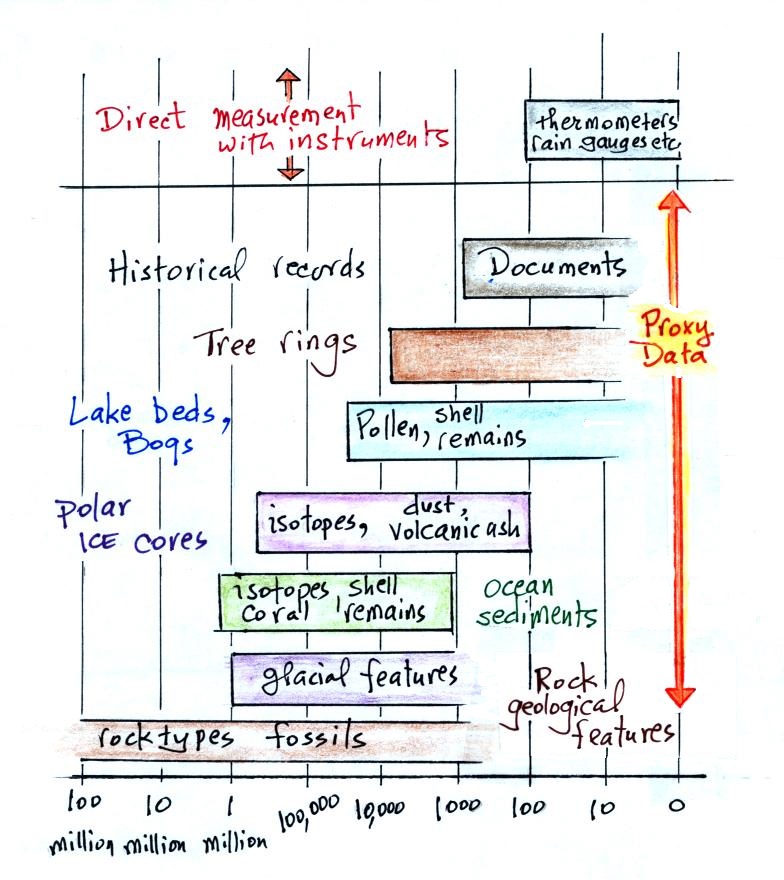 Direct measurement
with instruments
thermometers
rain gauges etc
Historical records
Documents
Tree rings
Proxy
Data
Lake beds,
Bogs
Pollen, shell
remains
Polar
ICE cores
isotopes, dust,
volcanic ash
isotopes, shell
coral remains
ocean
sediments
glacial features
Rock
geological
features
rock types fossils
100 10 1 100,000 10,000 1000 100 10 0
million million million